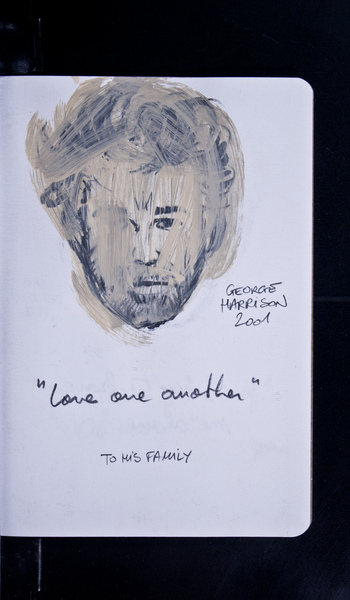 GEORGE
HARRISON
2001
"Love one another"
TO HIS FAMILY